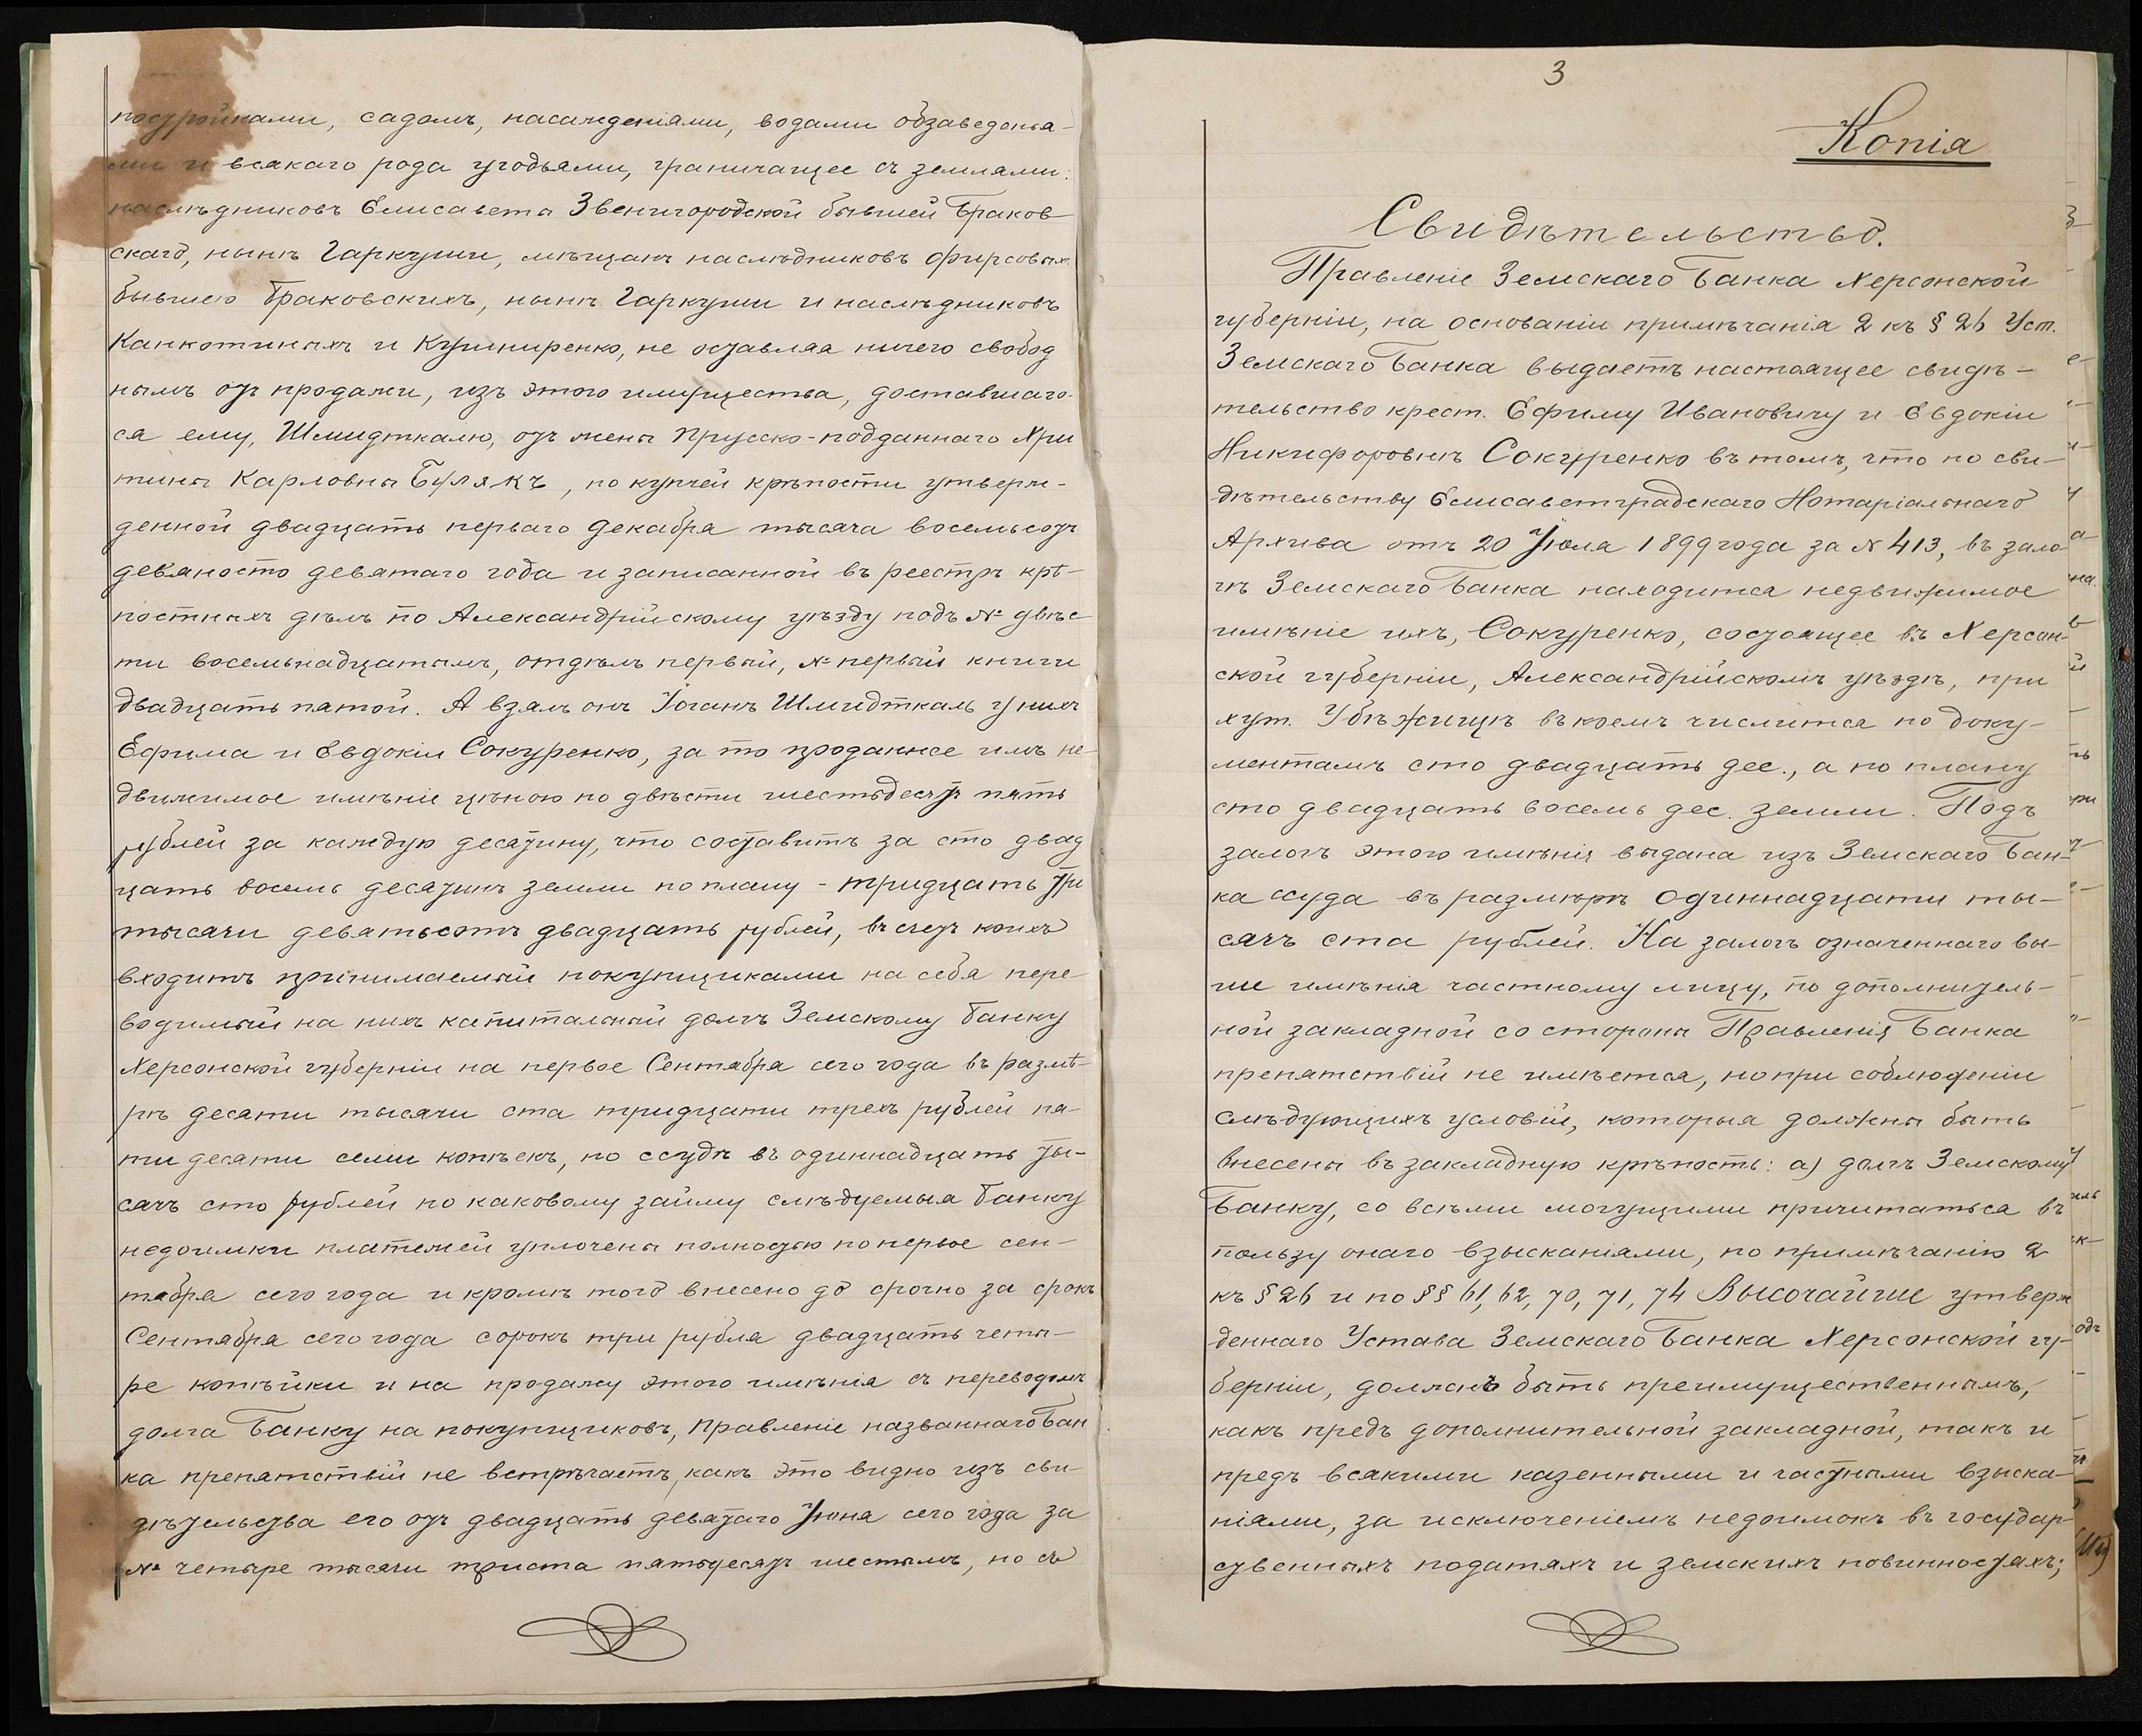 постройками, садомъ, насажденіями, водами обзаведенья-
ми и всякаго рода угодьями, граничащее съ землями:
наслѣдниковъ Елисавета Звенигородской бывшей Браков
скаго, нынѣ Гаркуши, мѣщанъ наслѣдниковъ Фирсовыхъ
бывшею Браковскихъ, нынѣ Гаркуши и наслѣдниковъ
и Кушниренко, не оставляя ничего свобод
нымъ отъ продажи, изъ этого имущества, доставшаго-
ся ему, Шмидткалю, отъ жены Прусско-подданнаго Хри
тины Карловны Булякъ, по купчей крѣпости утверж-
денной двадцать перваго Декабря тысяча восемьсотъ
девяносто девятаго года и записанной въ реестръ крѣ-
постныхъ дѣлъ по Александрійскому уѣзду подъ № двѣс
ти восемьнадцатымъ, отдѣлъ первый, № первый книги
двадцать пятой. А взялъ онъ Іоганъ Шмидткаль у нихъ
Ефима и Евдокіи Сокуренко, за то проданное имъ не-
движимое имѣніе цѣною по двѣсти шестьдесятъ пять
рублей за каждую десятину, что составитъ за сто двад
цать восемь десятинъ земли по плану - тридцать три
тысячи девятьсотъ двадцать рублей, въ счетъ коихъ
входитъ принимаемый покупщиками на себя пере-
водимый на нихъ капитальный долгъ Земскому Банку
Херсонской губерніи на первое Сентября сего года въ размѣ-
рѣ десяти тысячи ста тридцати трехъ рублей пя-
ти десяти семи копѣекъ, по ссудѣ въ одиннадцать ты-
сячъ сто рублей по каковому займу слѣдуемыя Банку
недоимки платежей уплочены полностью по первое сен-
тября сего года и кромѣ того внесено до срочно за срокъ
Сентября сего года сорокъ три рубля двадцать четы-
ре копѣйки и на продажу этого имѣнія съ переводомъ
долга Банку на покупщиковъ, Правленіе названнаго Бан
ка препятствій не встрѣчаетъ, какъ это видно изъ сви-
дѣтельства его отъ двадцать девятаго Іюня сего года за
№ четыре тысячи триста пятьдесятъ шестымъ, но съ
3
Копія
Свидѣтельство.
Правленіе Земскаго Банка Херсонской
губерніи, на основаніи примѣчанія 2 къ § 26 Уст.
Земскаго Банка выдаетъ настоящее свидѣ-
тельство крест. Ефиму Ивановичу и Евдокіи
Никифоровнѣ Сокуренко въ томъ, что по сви-
дѣтельству Елисаветградскаго Нотаріальнаго
Архива отъ 20 Іюля 1899 года за № 413, въ зало
гѣ Земскаго Банка находится недвижимое
имѣніе ихъ, Сокуренко, состоящее въ Херсон-
ской губерніи, Александрійскомъ уѣздѣ, при
хут. Убѣжищѣ въ коемъ числится по доку-
ментамъ сто двадцать дес., а по плану
сто двадцать восемь дес. земли. Подъ
залогъ этого имѣнія выдана изъ Земскаго Бан-
ка ссуда въ размѣрѣ одиннадцати ты-
сячъ ста рублей. На залогъ означеннаго вы-
ше имѣнія частному лицу, по дополнитель-
ной закладной со стороны Правленія Банка
препятствій не имѣется, но при соблюденіи
слѣдующихъ условій, которыя должны быть
внесены въ закладную крѣпость: а) долгъ Земскому
Банку, со всѣми могущими причитаться въ
пользу онаго взысканіями, по примѣчанію 2
къ § 26 и по §§ 61, 62, 70, 71, 74 Высочайше утверж
деннаго Устава Земскаго Банка Херсонской гу-
берніи, долженъ быть преимущественнымъ,
какъ предъ дополнительной закладной, такъ и
предъ всякими казенными и частными взыска-
ніями, за исключеніемъ недоимокъ въ государ-
ственныхъ податяхъ и земскихъ повинностяхъ;